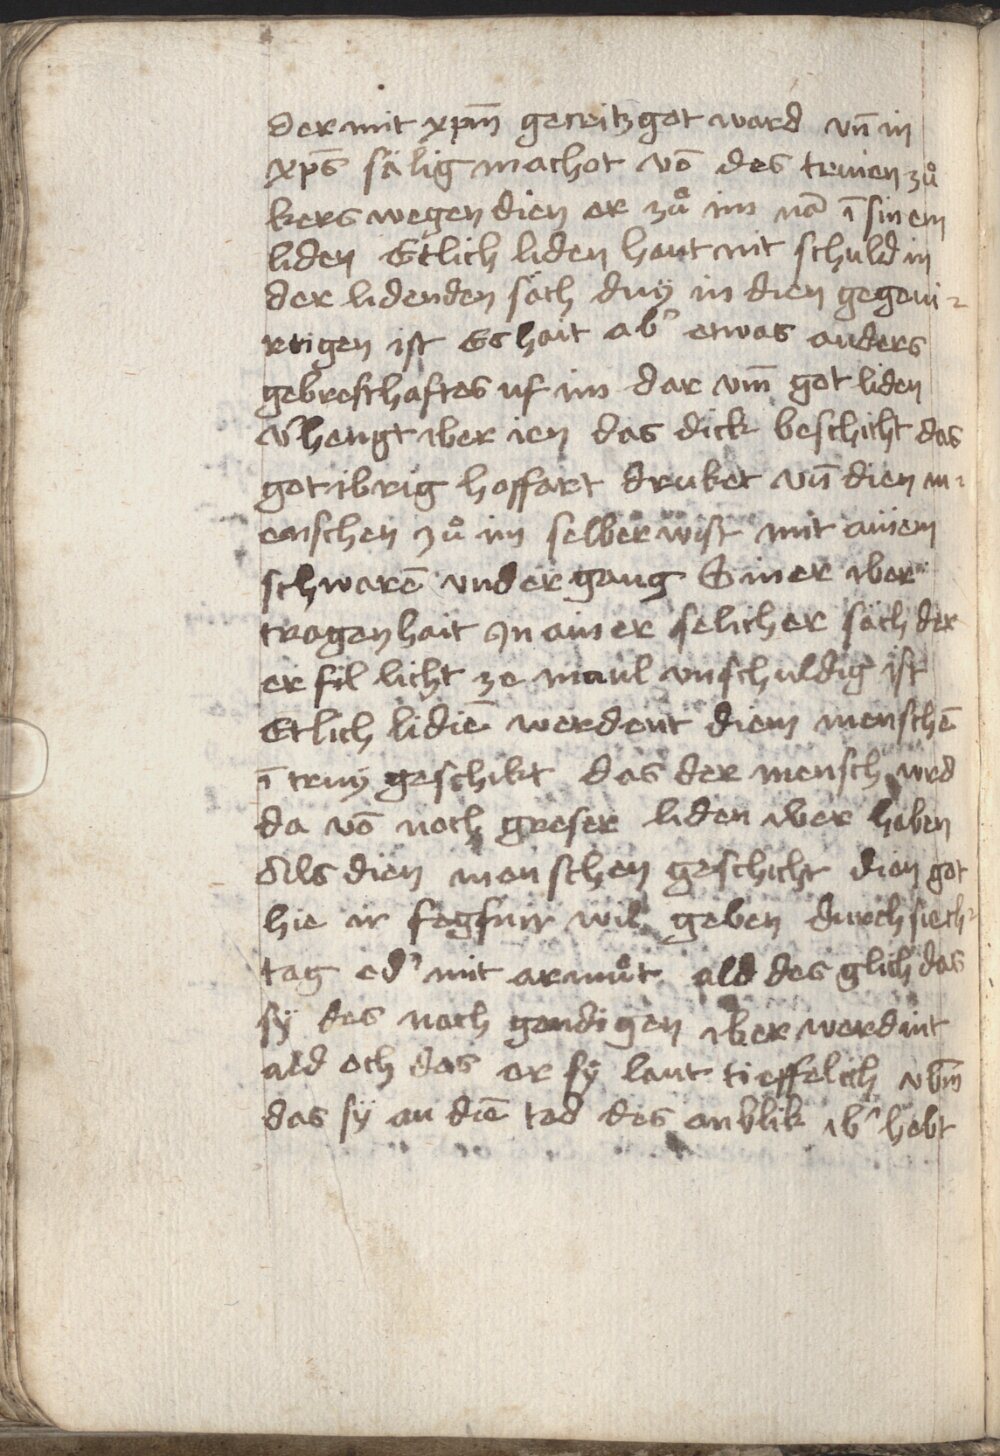 der mit xpm̄ gecritzgot ward vn̄ in
xps̄ sälig machot vō des truien zů
kers wegen dien er zů im nā ī sinem
liden Etlich liden haut nit schuld in
der lidenden säch duÿ in dien gegeni-
rtigen ist Es hait abʾ etwas anders
gebresthaftes uf im dar vm̄ got liden
vʾhengt iber ien das dick beschicht das
got ibrig hoffart druket vn̄ dien m-
enschen zů im selber wist mit ainem
schwarē vnder gang Siner iber
tragenhait In ainer selicher säch der
er fil licht ze maul vnschuldig ist
Etlich lidiē werdent diem menschē
ī truÿ geschikt das der mensch werd
da vō noch greser liden iber haben
Als dien menschen geschicht dien got
hie ir fegfuir wil geben durch siech-
tag edʾ mit armůt ald des glich das
sÿ des noch gendigen iber werdint
ald och das er sÿ laut tieffelich vbm̄
das sÿ an diē tod des anblik ibʾ hebt